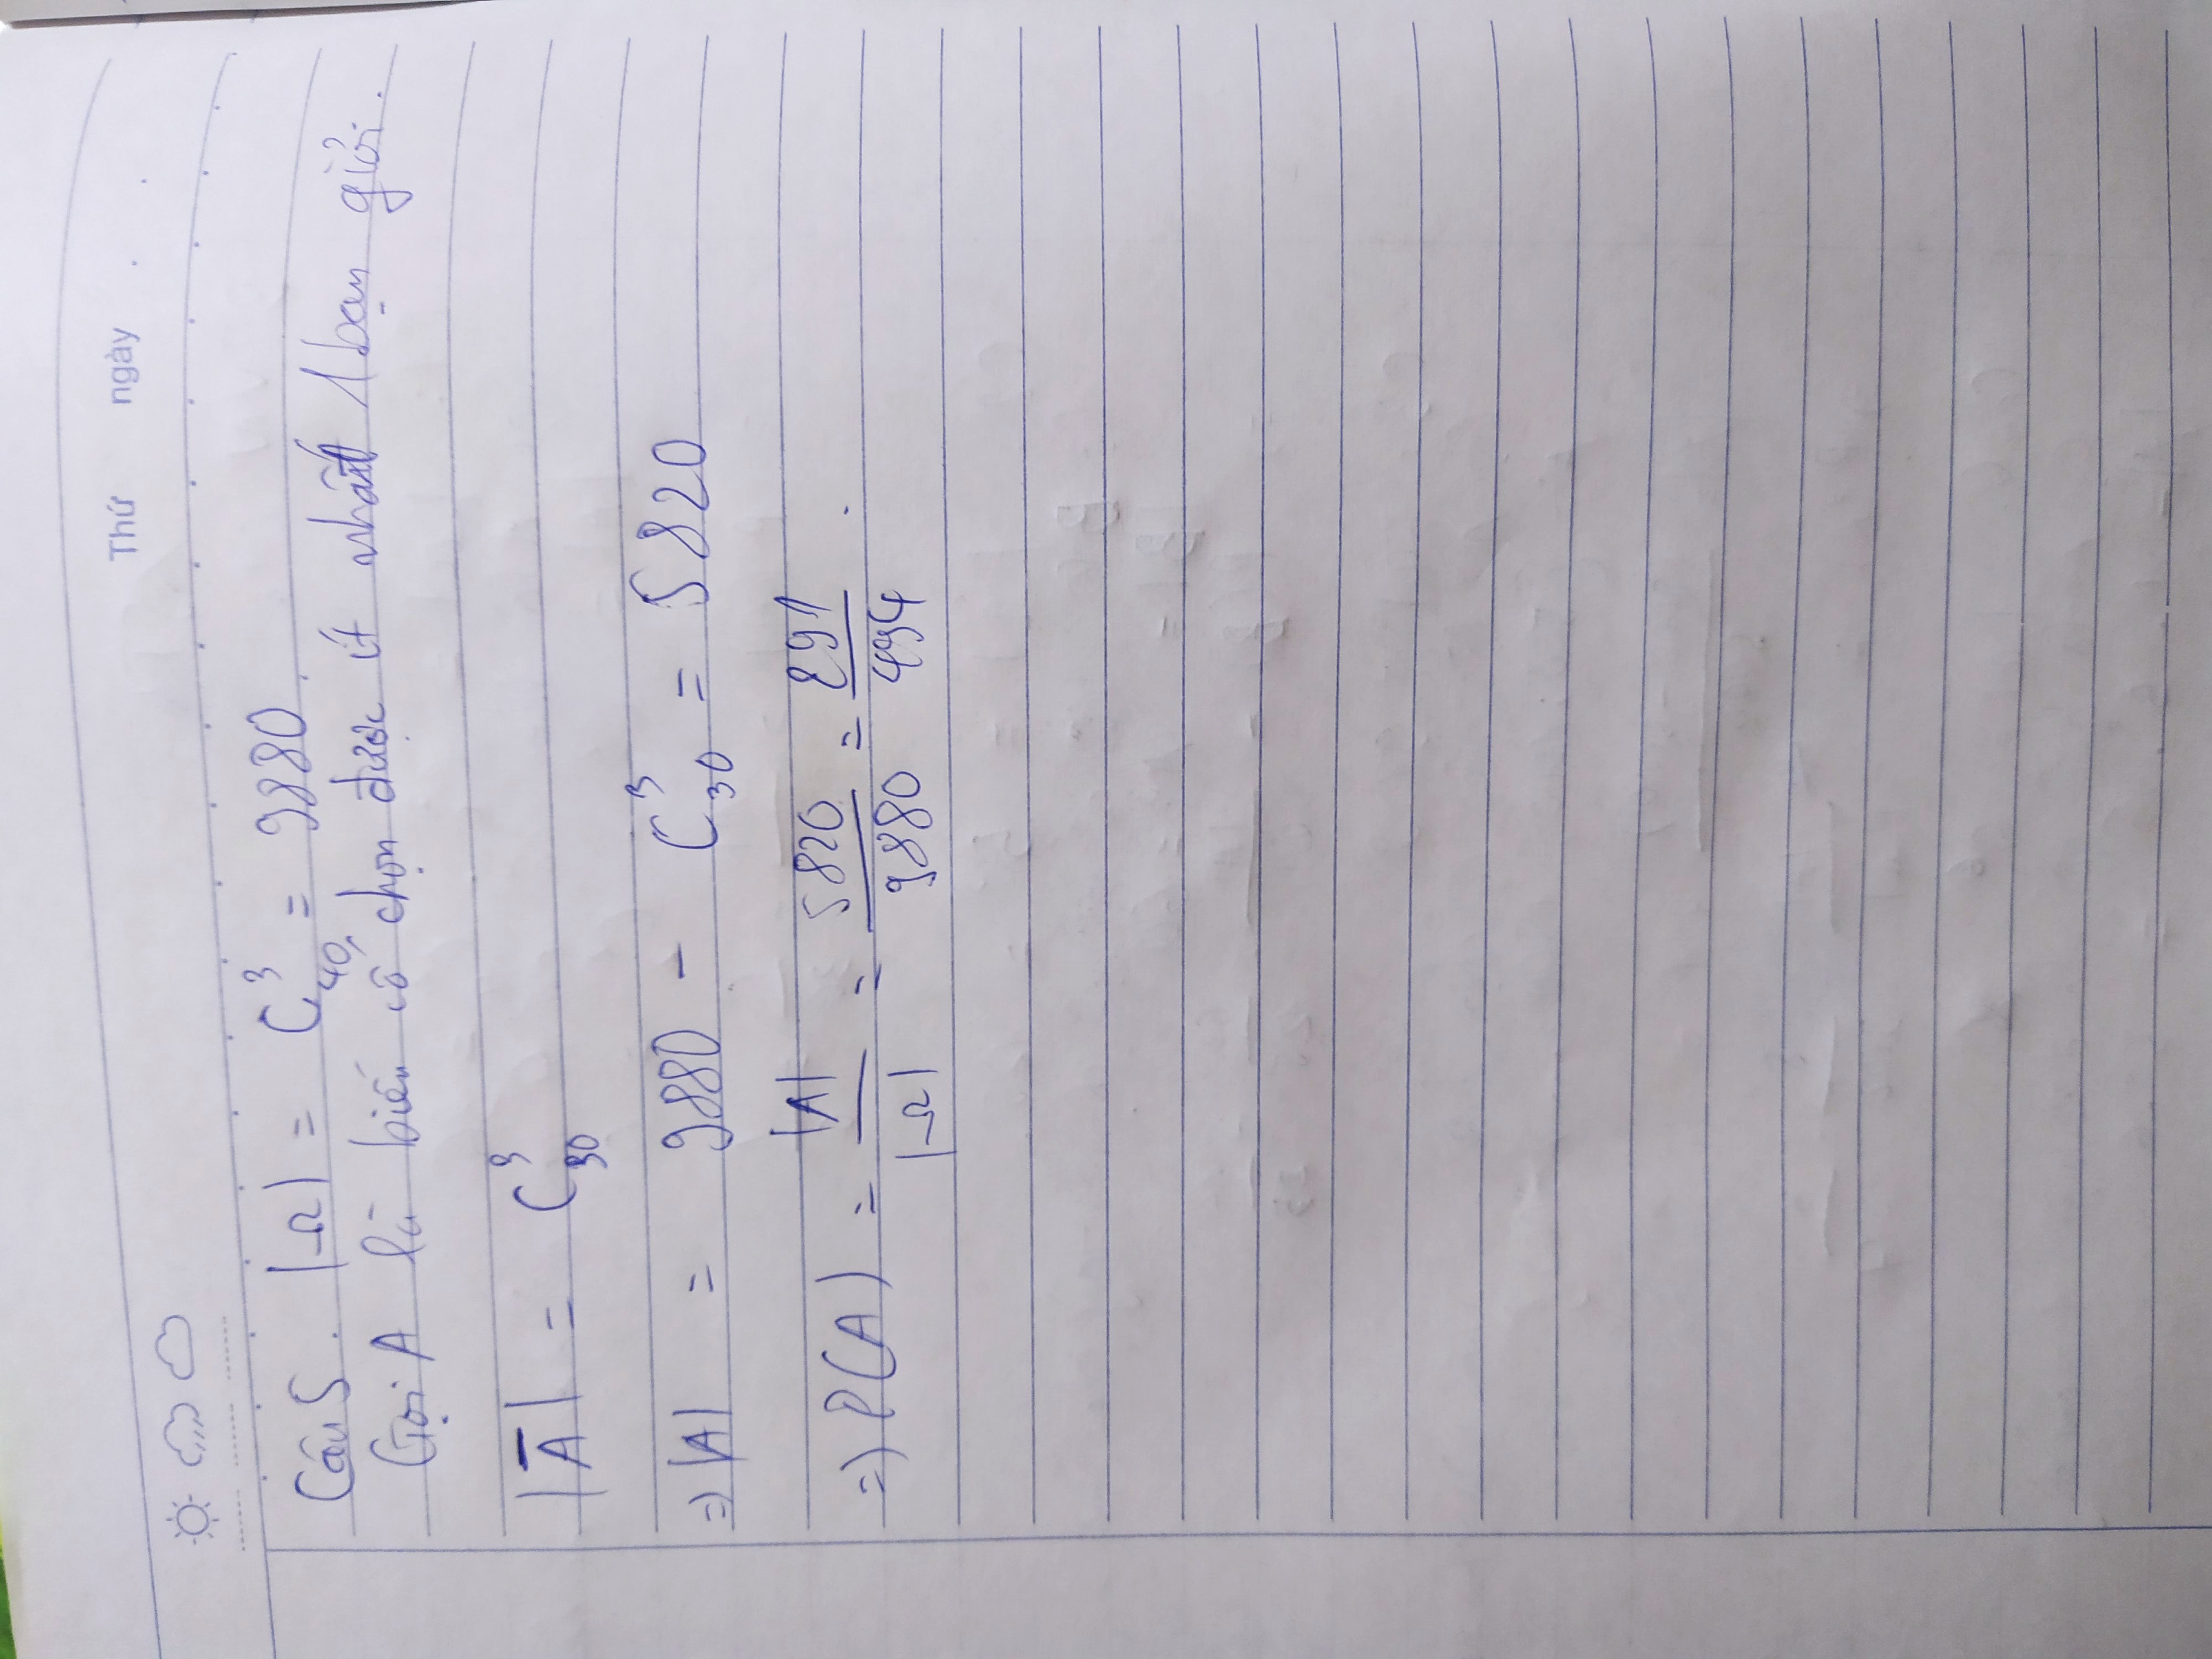 Thứ ngày . .
Câu 5. |Ω| = C³₄₀ = 9880.
Gọi A là biến cố chọn được ít nhất 1 bạn giỏi.
|A̅| = C³₃₀
=> |A| = 9880 - C³₃₀ = 5820
=> P(A) = |A| / |Ω| = 5820 / 9880 = 291 / 494 .